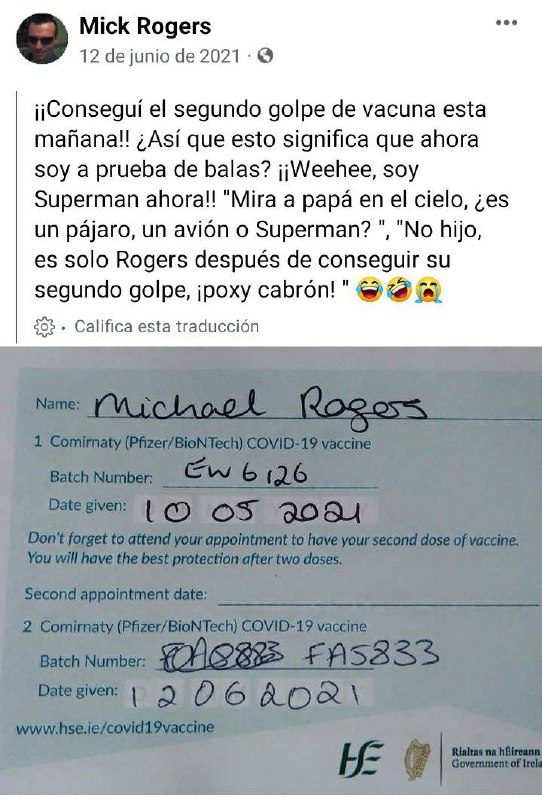 Mick Rogers
12 de junio de 2021 ·
¡¡Conseguí el segundo golpe de vacuna esta
mañana!! ¿Así que esto significa que ahora
soy a prueba de balas? ¡¡Weehee, soy
Superman ahora!! "Mira a papá en el cielo, ¿es
un pájaro, un avión o Superman? ", "No hijo,
es solo Rogers después de conseguir su
segundo golpe, ¡poxy cabrón! " 😂🤣😭
· Califica esta traducción
Name: Michael Rogers
1 Comirnaty (Pfizer/BioNTech) COVID-19 vaccine
Batch Number: EW6126
Date given: 10 05 2021
Don't forget to attend your appointment to have your second dose of vaccine.
You will have the best protection after two doses.
Second appointment date:
2 Comirnaty (Pfizer/BioNTech) COVID-19 vaccine
Batch Number: FA5833
Date given: 12 06 2021
www.hse.ie/covid19vaccine
HE
Rialtas na hÉireann
Government of Irela